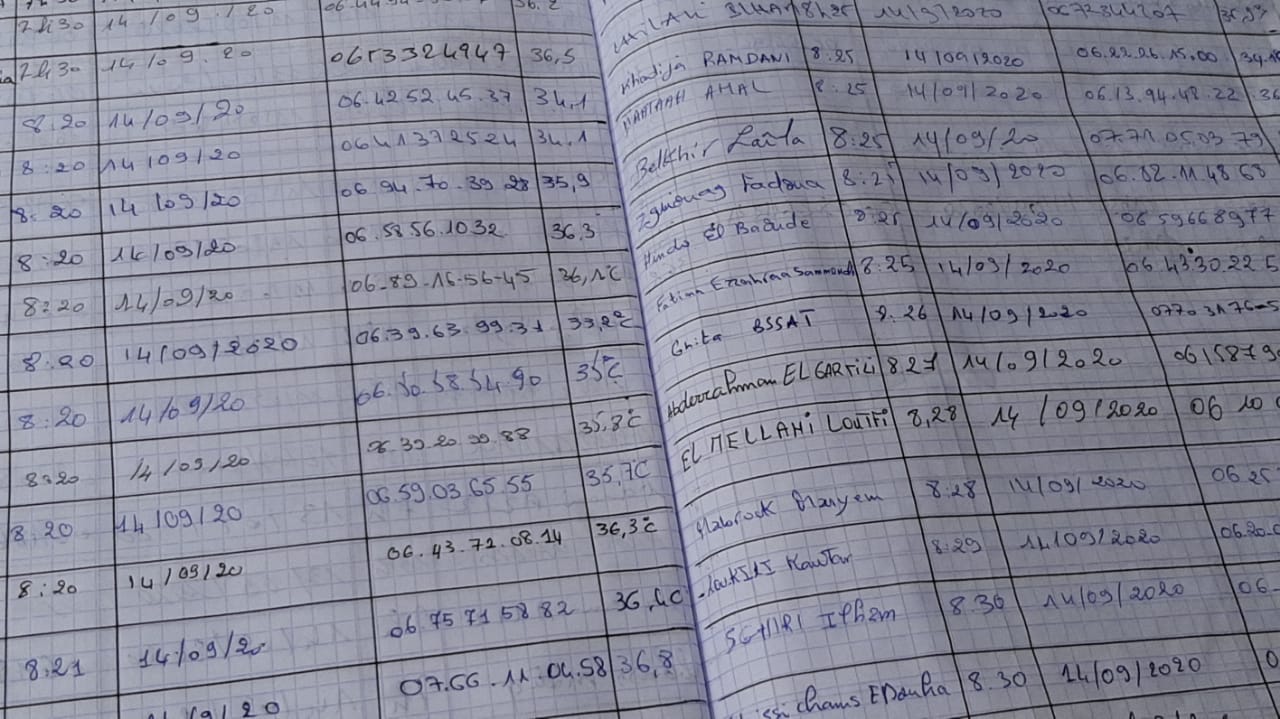 7h30 14/09/20
7h30 14/09.20 0653324947 36,5
8.20 14/09/20 06.42.52.45.37 34,1
8:20 14/09/20 0641372524 34,1
8:20 14/09/20 06.94.70.39.28 35,9
8:20 14/09/20 06.58.56.1032 36.3
8:20 14/09/20 06-89-16-56-45 36,1°C
8:20 14/09/2020 06.39.63.99.31
8:20 14/09/20 06.50.58.54.90 35°C
8:20 14/09/20 35,8°C
8.20 14/09/20 06.59.03.65.55 35,7°C
8:20 14/09/20 06.43.72.08.14 36,3°C
8.21 14/09/20 06 75 71 58 82 36,4C
07.66.11.04.58 36,8
8h25 14/9/2020
Khadija RAMDANI 8:25 14/09/2020 06.22.26.15.00
AMAL 8:25 14/09/2020 06.13.94.48.22 36
Belkhir Laila 8:25 14/09/20 07.71.05.03.79
Fadoua 8:25 14/09/2020 06.62.11 48 68
Hinde El Baaide 8:25 14/09/2020 06 59668977
Fatima Ezzahraa 8:25 14/09/2020 06.43.30.22 5
Ghita BSSAT 8.26 14/09/2020
Abderrahman EL GARTILI 8.27 14/09/2020 0615879
EL MELLAHI Loutfi 8,28 14/09/2020 06 10
Mabrouk Maryem 8:28 14/09/2020 06 25
Kawtar 8:29 14/09/2020 06.20
SGHIRI Ilhem 8.30 14/09/2020 06
8.30 14/09/2020 0